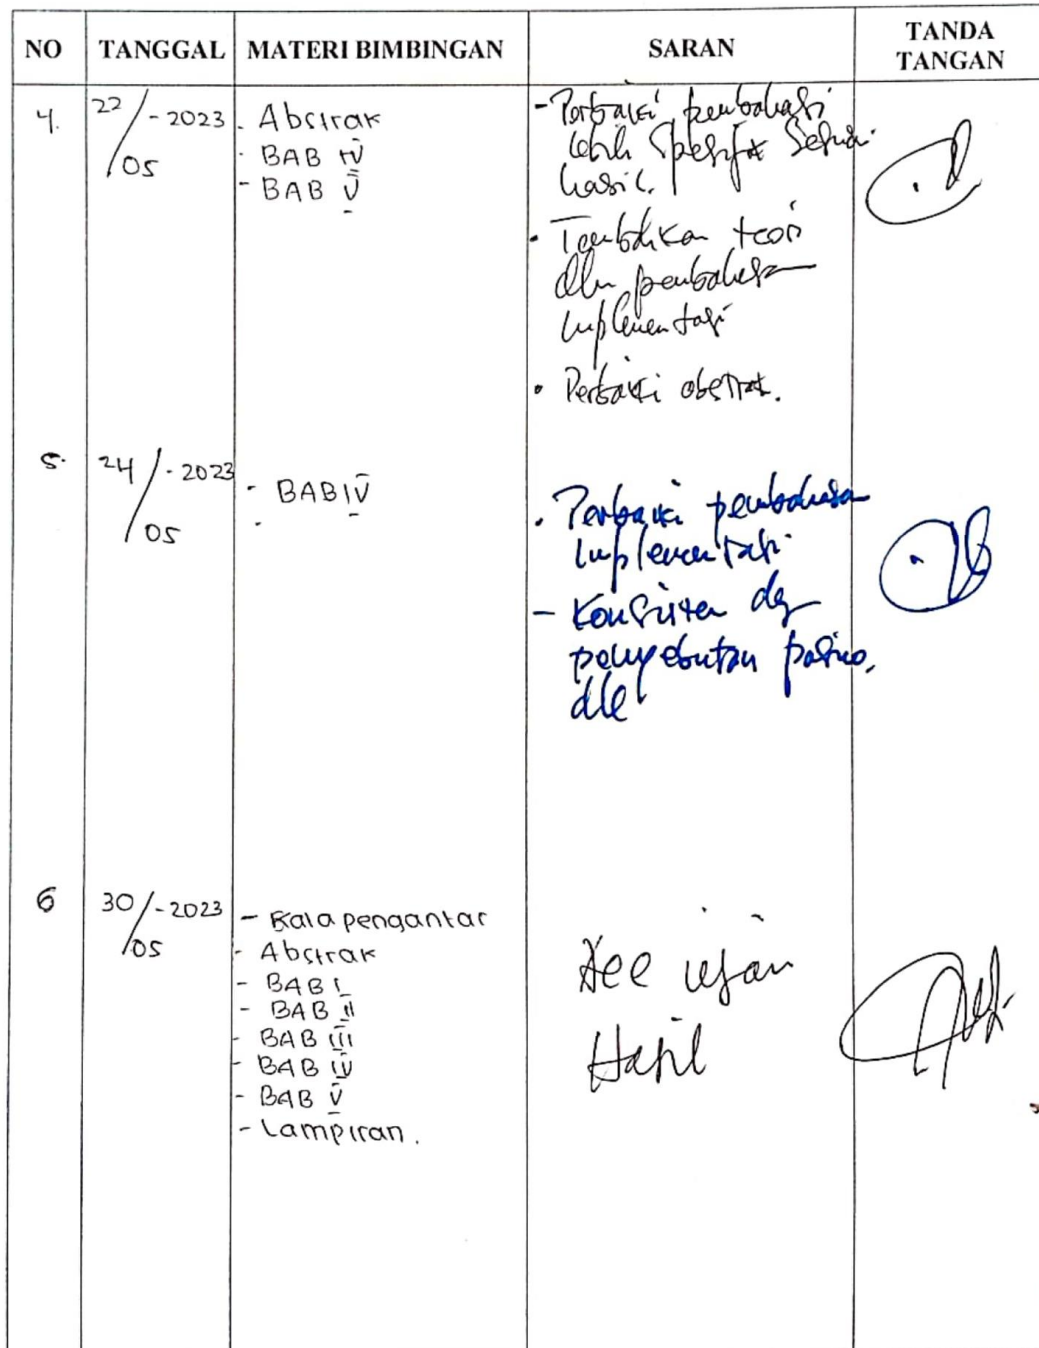 NO TANGGAL MATERI BIMBINGAN SARAN TANDA TANGAN
4. 22/05 - 2023
- Abstrak
- BAB IV
- BAB V
- Perbaiki pembahasan
lebih spesifik sesuai
hasil.
- Tambahkan teori
dlm pembahasan
implementasi
- Perbaiki abstrak.
5. 24/05 - 2023
- BAB IV
-
- Perbaiki pembahasan
implementasi
- Konsisten dg
penyebutan pasien,
dll
6 30/05 - 2023
- Kata pengantar
- Abstrak
- BAB I
- BAB II
- BAB III
- BAB IV
- BAB V
- Lampiran.
Acc ujian
Hasil